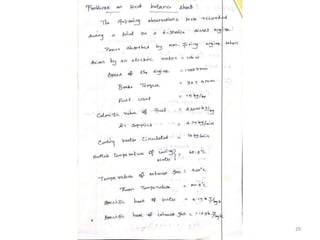 Problems on heat balance sheet:
The following observations were recorded
during a trial on a 4-stroke diesel engine:
Power absorbed by non-firing engine when
driven by an electric motor = 10kW
Speed of the engine =
Brake Torque =
Fuel used = 15 kg/hr
Calorific value of fuel =
Air supplied = 4.75 kg/min
Cooling water circulated = 16 kg/min
Outlet temperature of cooling water = 65.8°C
Temperature of exhaust gas =
Room Temperature = 20.8°C
Specific heat of water = 4.19 kJ/kgK
Specific heat of exhaust gas = 1.25 kJ/kgK
29